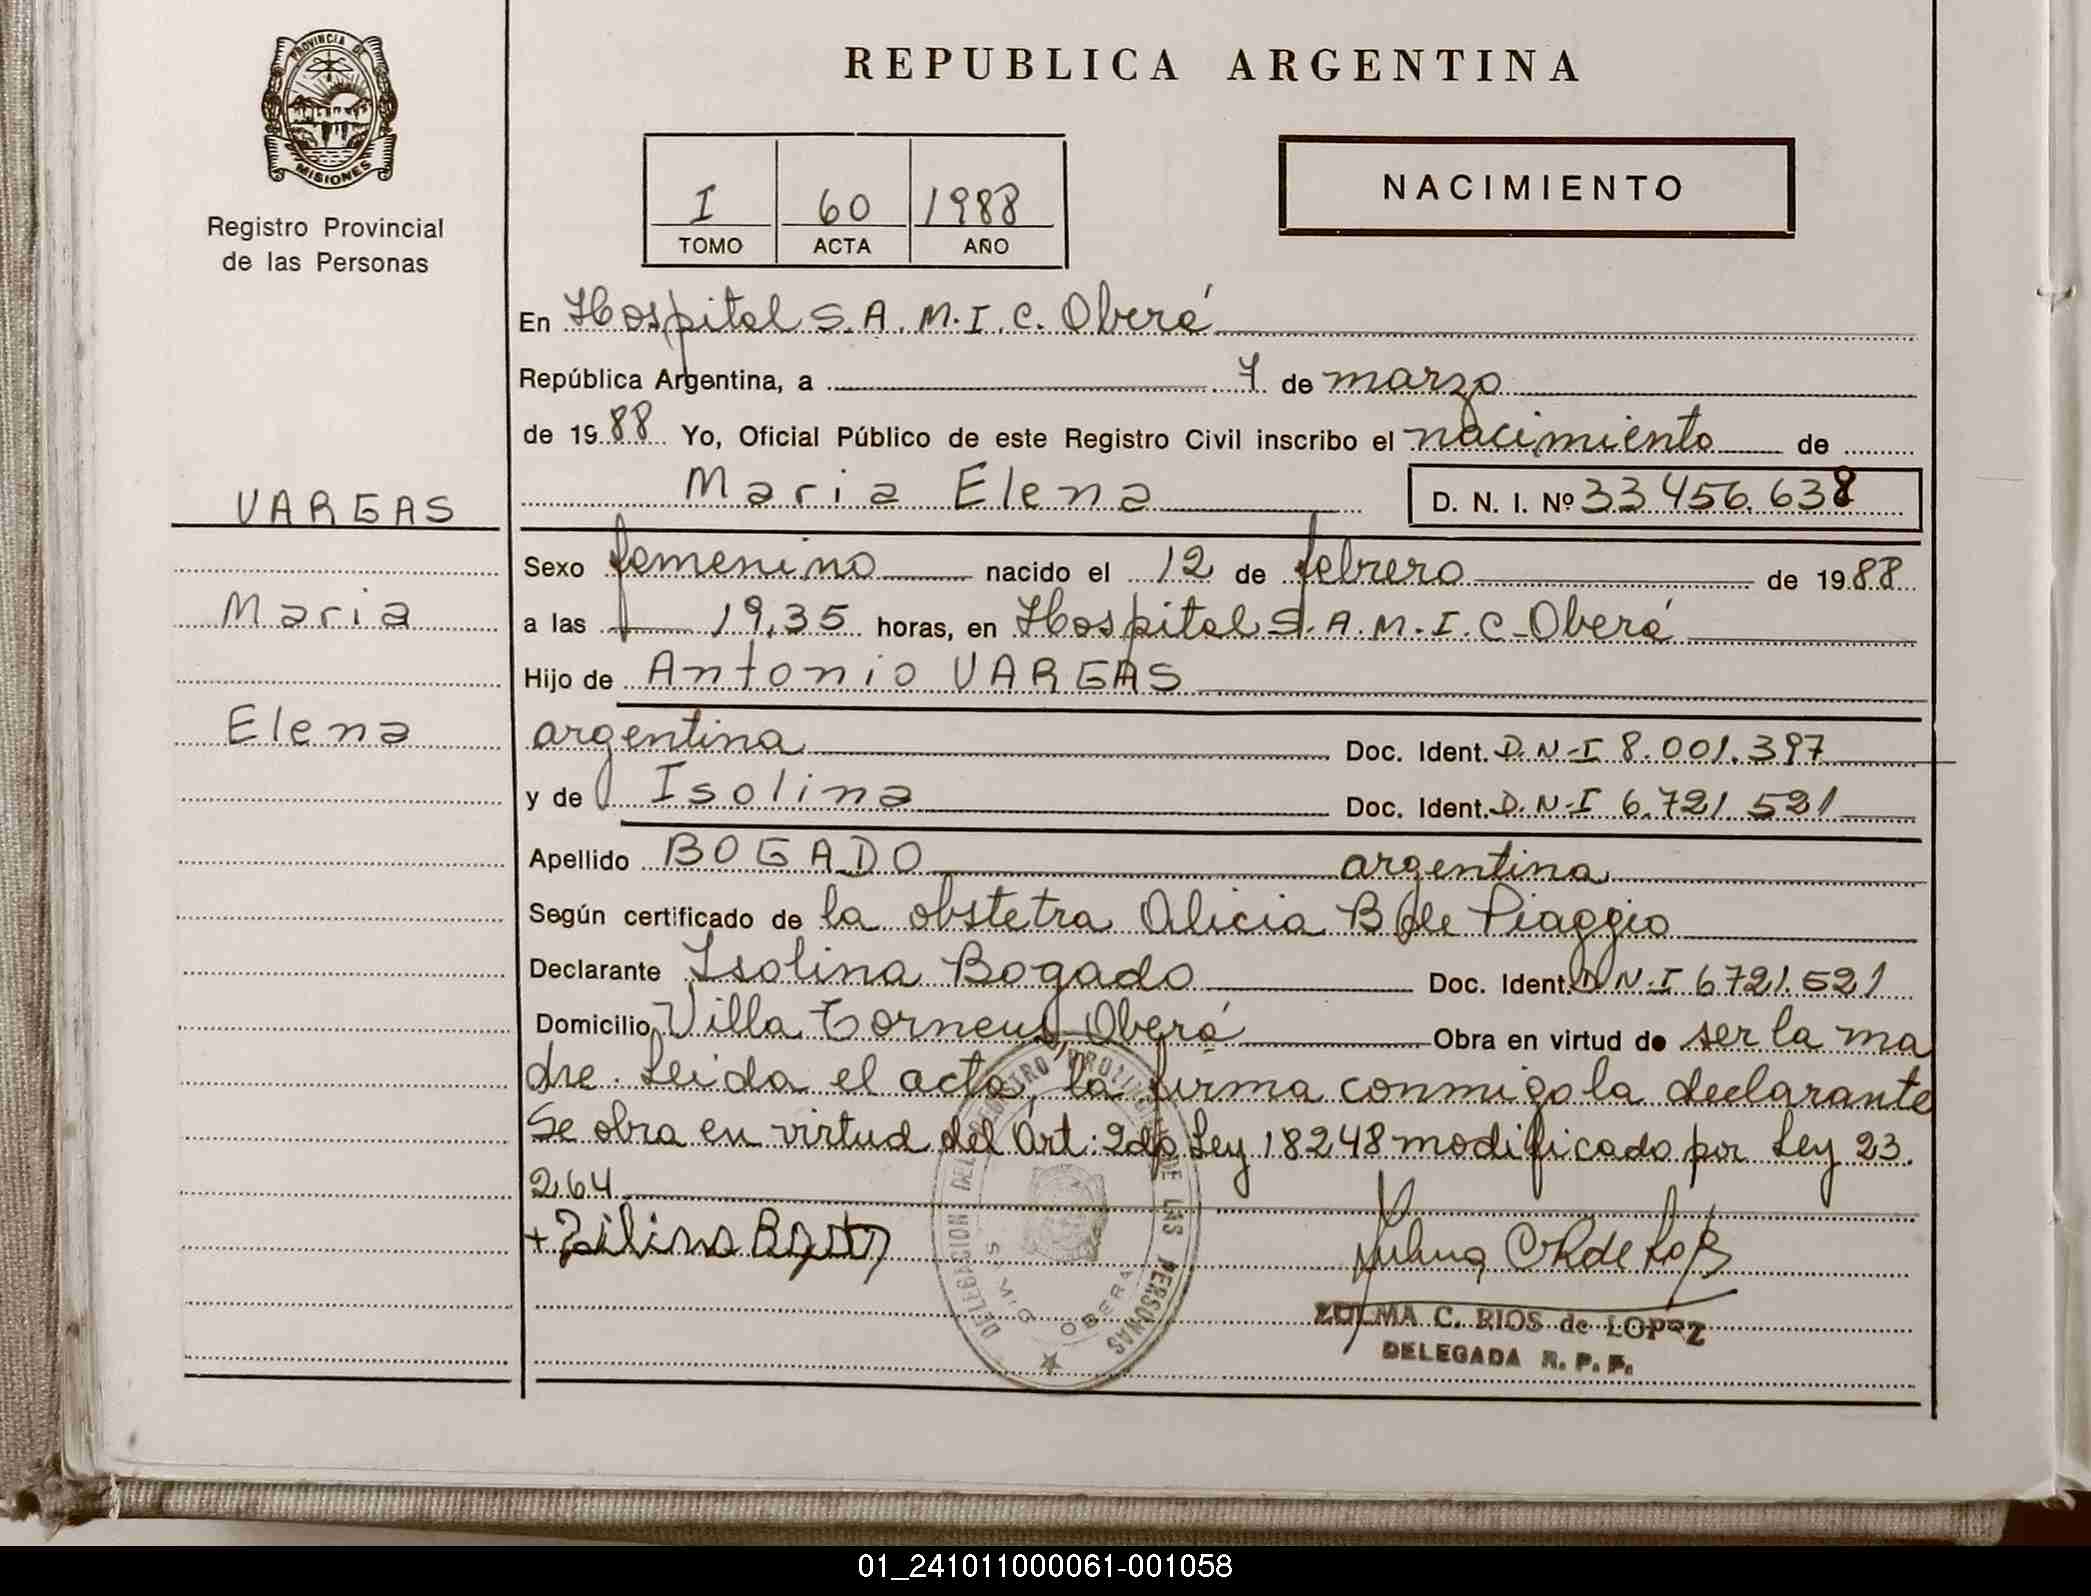 PROVINCIA DE
MISIONES
Registro Provincial
de las Personas
VARGAS
Maria
Elena
REPUBLICA ARGENTINA
I 60 1988
TOMO ACTA AÑO
NACIMIENTO
En Hospital S.A.M.I.C. Oberá
República Argentina, a 7 de marzo
de 1988 Yo, Oficial Público de este Registro Civil inscribo el nacimiento de
Maria Elena D. N. I. Nº 33.456.638
Sexo femenino nacido el 12 de febrero de 1988
a las 19,35 horas, en Hospital S.A.M.I.C-Oberá
Hijo de Antonio VARGAS
argentina Doc. Ident. D.N-I 8.001.397
y de Isolina Doc. Ident. D.N-I 6.721.521
Apellido BOGADO argentina
Según certificado de la obstetra Alicia B de Piaggio
Declarante Isolina Bogado Doc. Ident. D.N-I 6721.521
Domicilio Villa Oberá Obra en virtud de ser la ma
dre. Leida el acta, la firma conmigo la declarante
Se obra en virtud del Art: 2do Ley 18248 modificado por Ley 23.
264
DELEGACION DEL REGISTRO PROVINCIAL DE LAS PERSONAS
OBERA
ZULMA C. RIOS de LOPEZ
DELEGADA R. P. P.
01_241011000061-001058